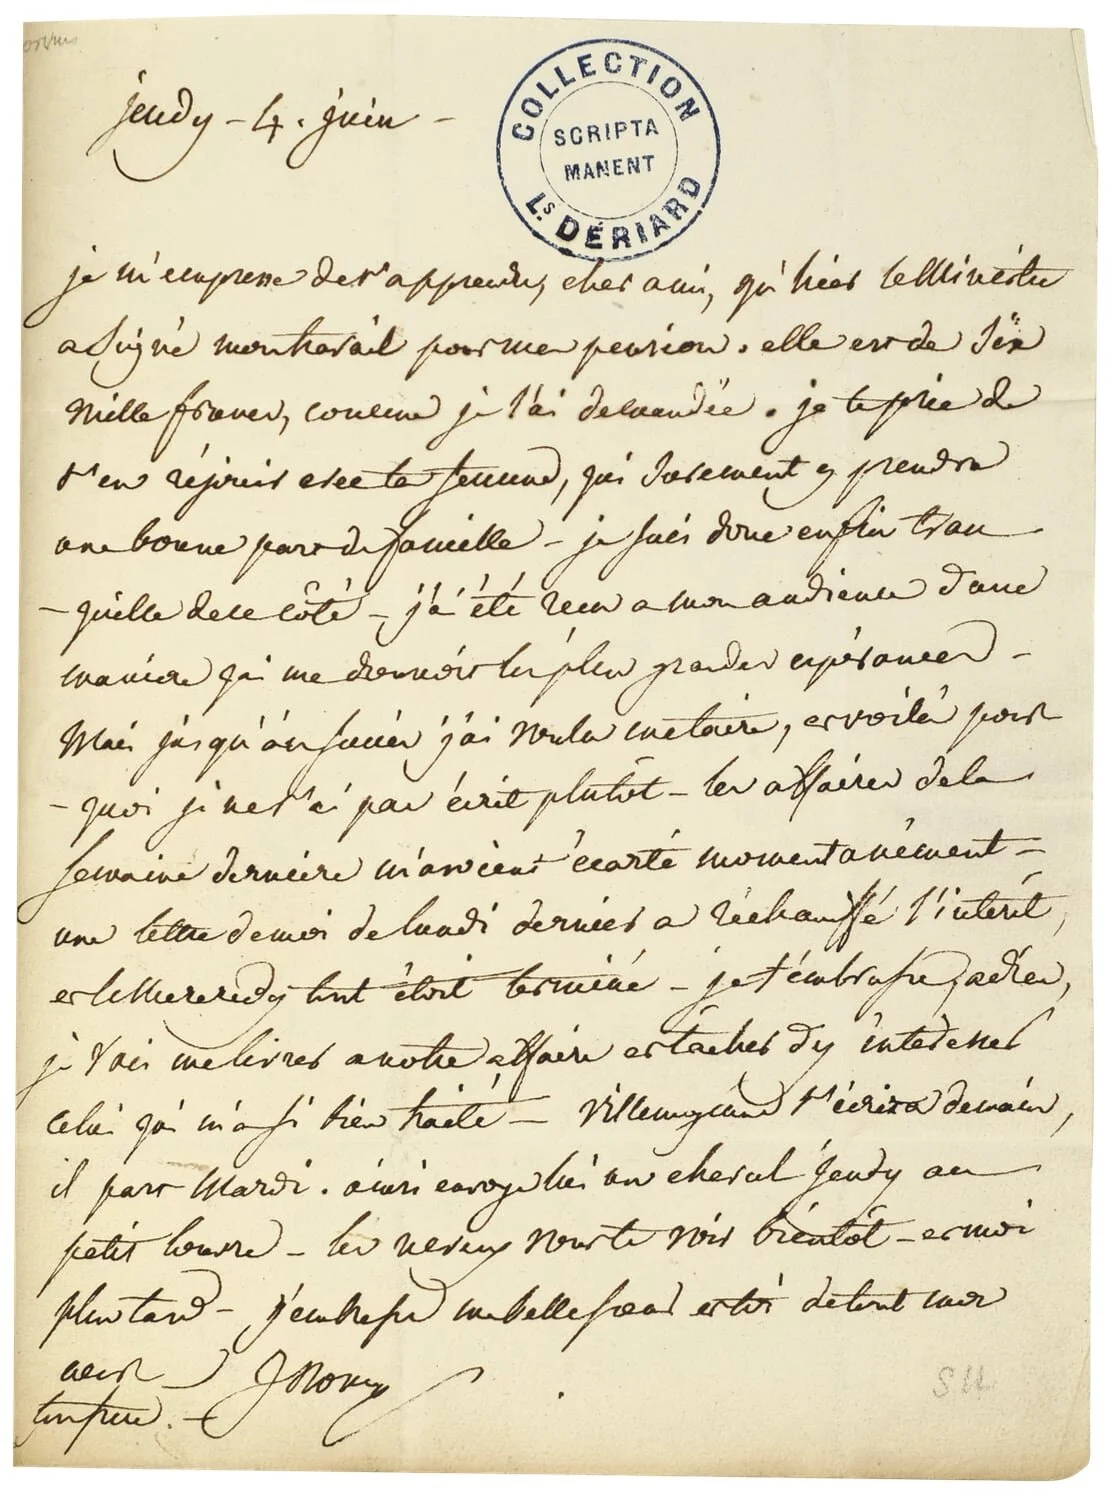 jeudy - 4. juin -
COLLECTION
SCRIPTA
MANENT
Ls DÉRIARD
je m'empresse de t'apprendre, cher ami, qu'hier le Ministre
a signé mon travail pour ma pension. elle est de six
mille francs, comme je l'ai demandée. je te prie de
t'en réjouir avec ta femme, qui surement y prendra
une bonne part de famille - je suis donc enfin tran
- quille de ce côté - j'ai été recu a mon audience d'une
maniere qui me donnoit les plus grandes espérances -
Mais jusqu'au succès j'ai voulu me taire, et voilà pour
- quoi je ne t'ai pas écrit plutôt - les affaires de la
semaine derniere m'avoient écarté momentanément -
une lettre de moi de lundi dernier a réchauffé l'intérêt,
et le Mercredy tout étoit terminé - je t'embrasse, adieu,
je vais me livrer a notre affaire et tâcher d'y intéresser
celui qui m'a si bien traité - t'écrira demain,
il part Mardi. ainsi envoye lui un cheval jeudy au
petit - les neveux vont te voir bientôt - et moi
plus tard - j'embrasse ma belle soeur et toi de tout mon
coeur
ton frere. - J Norvins
S U